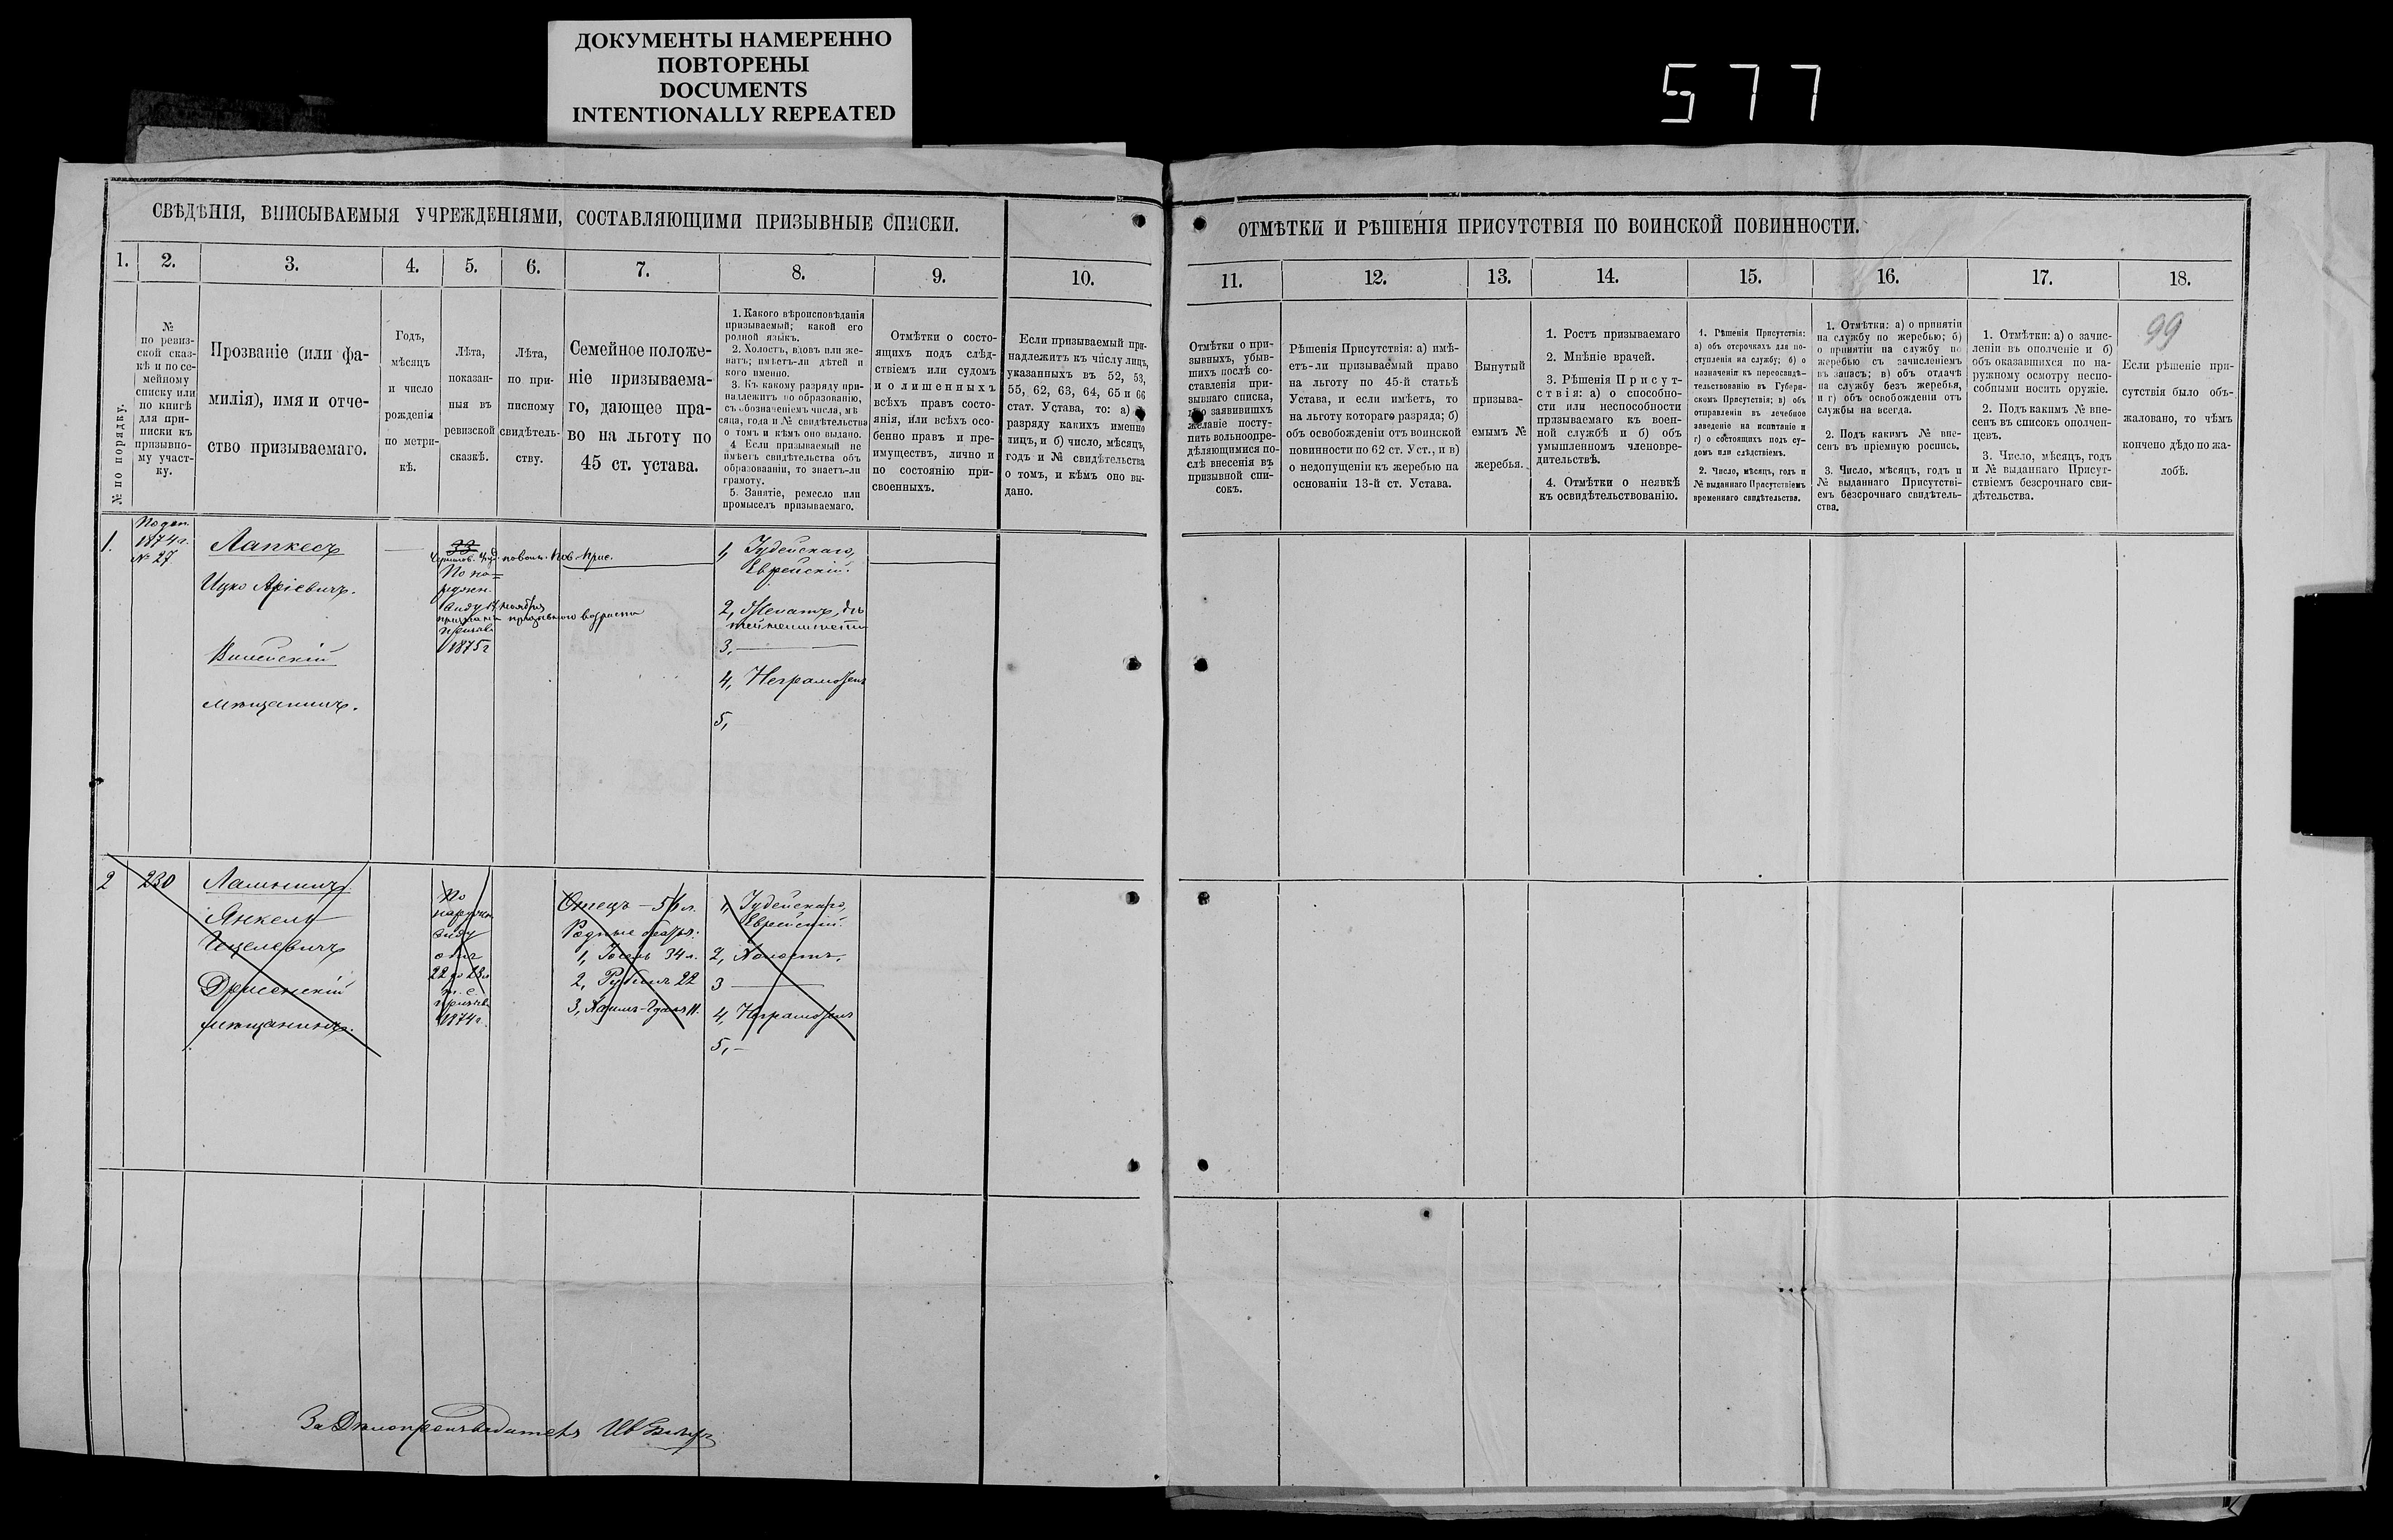 ДОКУМЕНТЫ НАМЕРЕННО
ПОВТОРЕНЫ
DOCUMENTS
INTENTIONALLY REPEATED
577
СВѢДѢНІЯ, ВПИСЫВАЕМЫЯ УЧРЕЖДЕНІЯМИ, СОСТАВЛЯЮЩИМИ ПРИЗЫВНЫЕ СПИСКИ.
ОТМѢТКИ И РѢШЕНІЯ ПРИСУТСТВІЯ ПО ВОИНСКОЙ ПОВИННОСТИ.
1.
№ по порядку.
2.
№
по ревиз-
ской сказ-
кѣ и по се-
мейному
списку или
по книгѣ
для при-
писки къ
призывно-
му участ-
ку.
3.
Прозваніе (или фа-
милія), имя и отче-
ство призываемаго.
4.
Годъ,
мѣсяцъ
и число
рожденія
по метри-
кѣ.
5.
Лѣта,
показан-
ныя въ
ревизской
сказкѣ.
6.
Лѣта,
по при-
писному
свидѣтель-
ству.
7.
Семейное положе-
ніе призываема-
го, дающее пра-
во на льготу по
45 ст. устава.
8.
1. Какого вѣроисповѣданія
призываемый; какой его
родной языкъ.
2. Холостъ, вдовъ или же-
натъ; имѣетъ-ли дѣтей и
кого именно.
3. Къ какому разряду при-
надлежитъ по образованію,
съ обозначеніемъ числа, мѣ
сяца, года и № свидѣтельства
о томъ и кѣмъ оно выдано.
4 Если призываемый не
имѣетъ свидѣтельства объ
образованіи, то знаетъ-ли
грамоту.
5. Занятіе, ремесло или
промыселъ призываемаго.
9.
Отмѣтки о состо-
ящихъ подъ слѣд-
ствіемъ или судомъ
и о лишенныхъ
всѣхъ правъ состо-
янія, или всѣхъ осо-
бенно правъ и пре-
имуществъ, лично и
по состоянію при-
своенныхъ.
10.
Если призываемый при-
надлежитъ къ числу лицъ,
указанныхъ въ 52, 53,
55, 62, 63, 64, 65 и 66
стат. Устава, то: а) къ
разряду какихъ именно
лицъ, и б) число, мѣсяцъ,
годъ и № свидѣтельства
о томъ, и кѣмъ оно вы-
дано.
11.
Отмѣтки о при-
зывныхъ, убыв-
шихъ послѣ со-
ставленія при-
зывнаго списка,
и о заявившихъ
желаніе посту-
пить вольноопре-
дѣляющимися по-
слѣ внесенія въ
призывной спи-
сокъ.
12.
Рѣшенія Присутствія: а) имѣ-
етъ-ли призываемый право
на льготу по 45-й статьѣ
Устава, и если имѣетъ, то
на льготу котораго разряда; б)
объ освобожденіи отъ воинской
повинности по 62 ст. Уст., и в)
о недопущеніи къ жеребью на
основаніи 13-й ст. Устава.
13.
Вынутый
призыва-
емымъ №
жеребья.
14.
1. Ростъ призываемаго
2. Мнѣніе врачей.
3. Рѣшенія Присут-
ствія: а) о способно-
сти или неспособности
призываемаго къ воен-
ной службѣ и б) объ
умышленномъ членовре-
дительствѣ.
4. Отмѣтки о неявкѣ
къ освидѣтельствованію.
15.
1. Рѣшенія Присутствія:
а) объ отсрочкахъ для по-
ступленія на службу; б) о
назначеніи къ переосвидѣ-
тельствованію въ Губерн-
скомъ Присутствіи; в) объ
отправленіи въ лечебное
заведеніе на испытаніе и
г) о состоящихъ подъ су-
домъ или слѣдствіемъ.
2. Число, мѣсяцъ, годъ и
№ выданнаго Присутствіемъ
временнаго свидѣтельства.
16.
1. Отмѣтки: а) о принятіи
на службу по жеребью; б)
о принятіи на службу по
жеребью съ зачисленіемъ
въ запасъ; в) объ отдачѣ
на службу безъ жеребья,
и г) объ освобожденіи отъ
службы на всегда.
2. Подъ какимъ № вне-
сенъ въ пріемную роспись.
3. Число, мѣсяцъ, годъ и
№ выданнаго Присутстві-
емъ безсрочнаго свидѣтель-
ства.
17.
1. Отмѣтки: а) о зачис-
леніи въ ополченіе и б)
объ оказавшихся по на-
ружному осмотру неспо-
собными носить оружіе.
2. Подъ какимъ № вне-
сенъ въ списокъ ополчен-
цевъ.
3. Число, мѣсяцъ, годъ
и № выданнаго Присут-
ствіемъ безсрочнаго сви-
дѣтельства.
18.
99
Если рѣшеніе при-
сутствія было объ-
жаловано, то чѣмъ
кончено дѣло по жа-
лобѣ.
1.
По доп.
1874 г.
№ 27
Лапкесъ
Ицко Аріевичъ.
Вилейскій
мѣщанинъ.
33
По на-
ружн.
виду
призывнаго возраста
призыва
1875 г
1, Іудейскаго,
Еврейскій.
2, Женатъ, дѣ
тей неимѣетъ
3,
4, Неграмотенъ
5,
2
230
Янкель
Ицелевичъ
Дрисенскій
мѣщанинъ.
По
наружн.
виду
отъ
22 до 23 л
т. е.
призыва
1874 г.
Отецъ – 56 л.
Родные братья:
1, Іосель 34 л.
2, Рубинъ 22
3, 11.
1, Іудейскаго,
Еврейскій.
2, Холостъ,
3
4, Неграмотенъ
5, –
За Дѣлопроизводителя